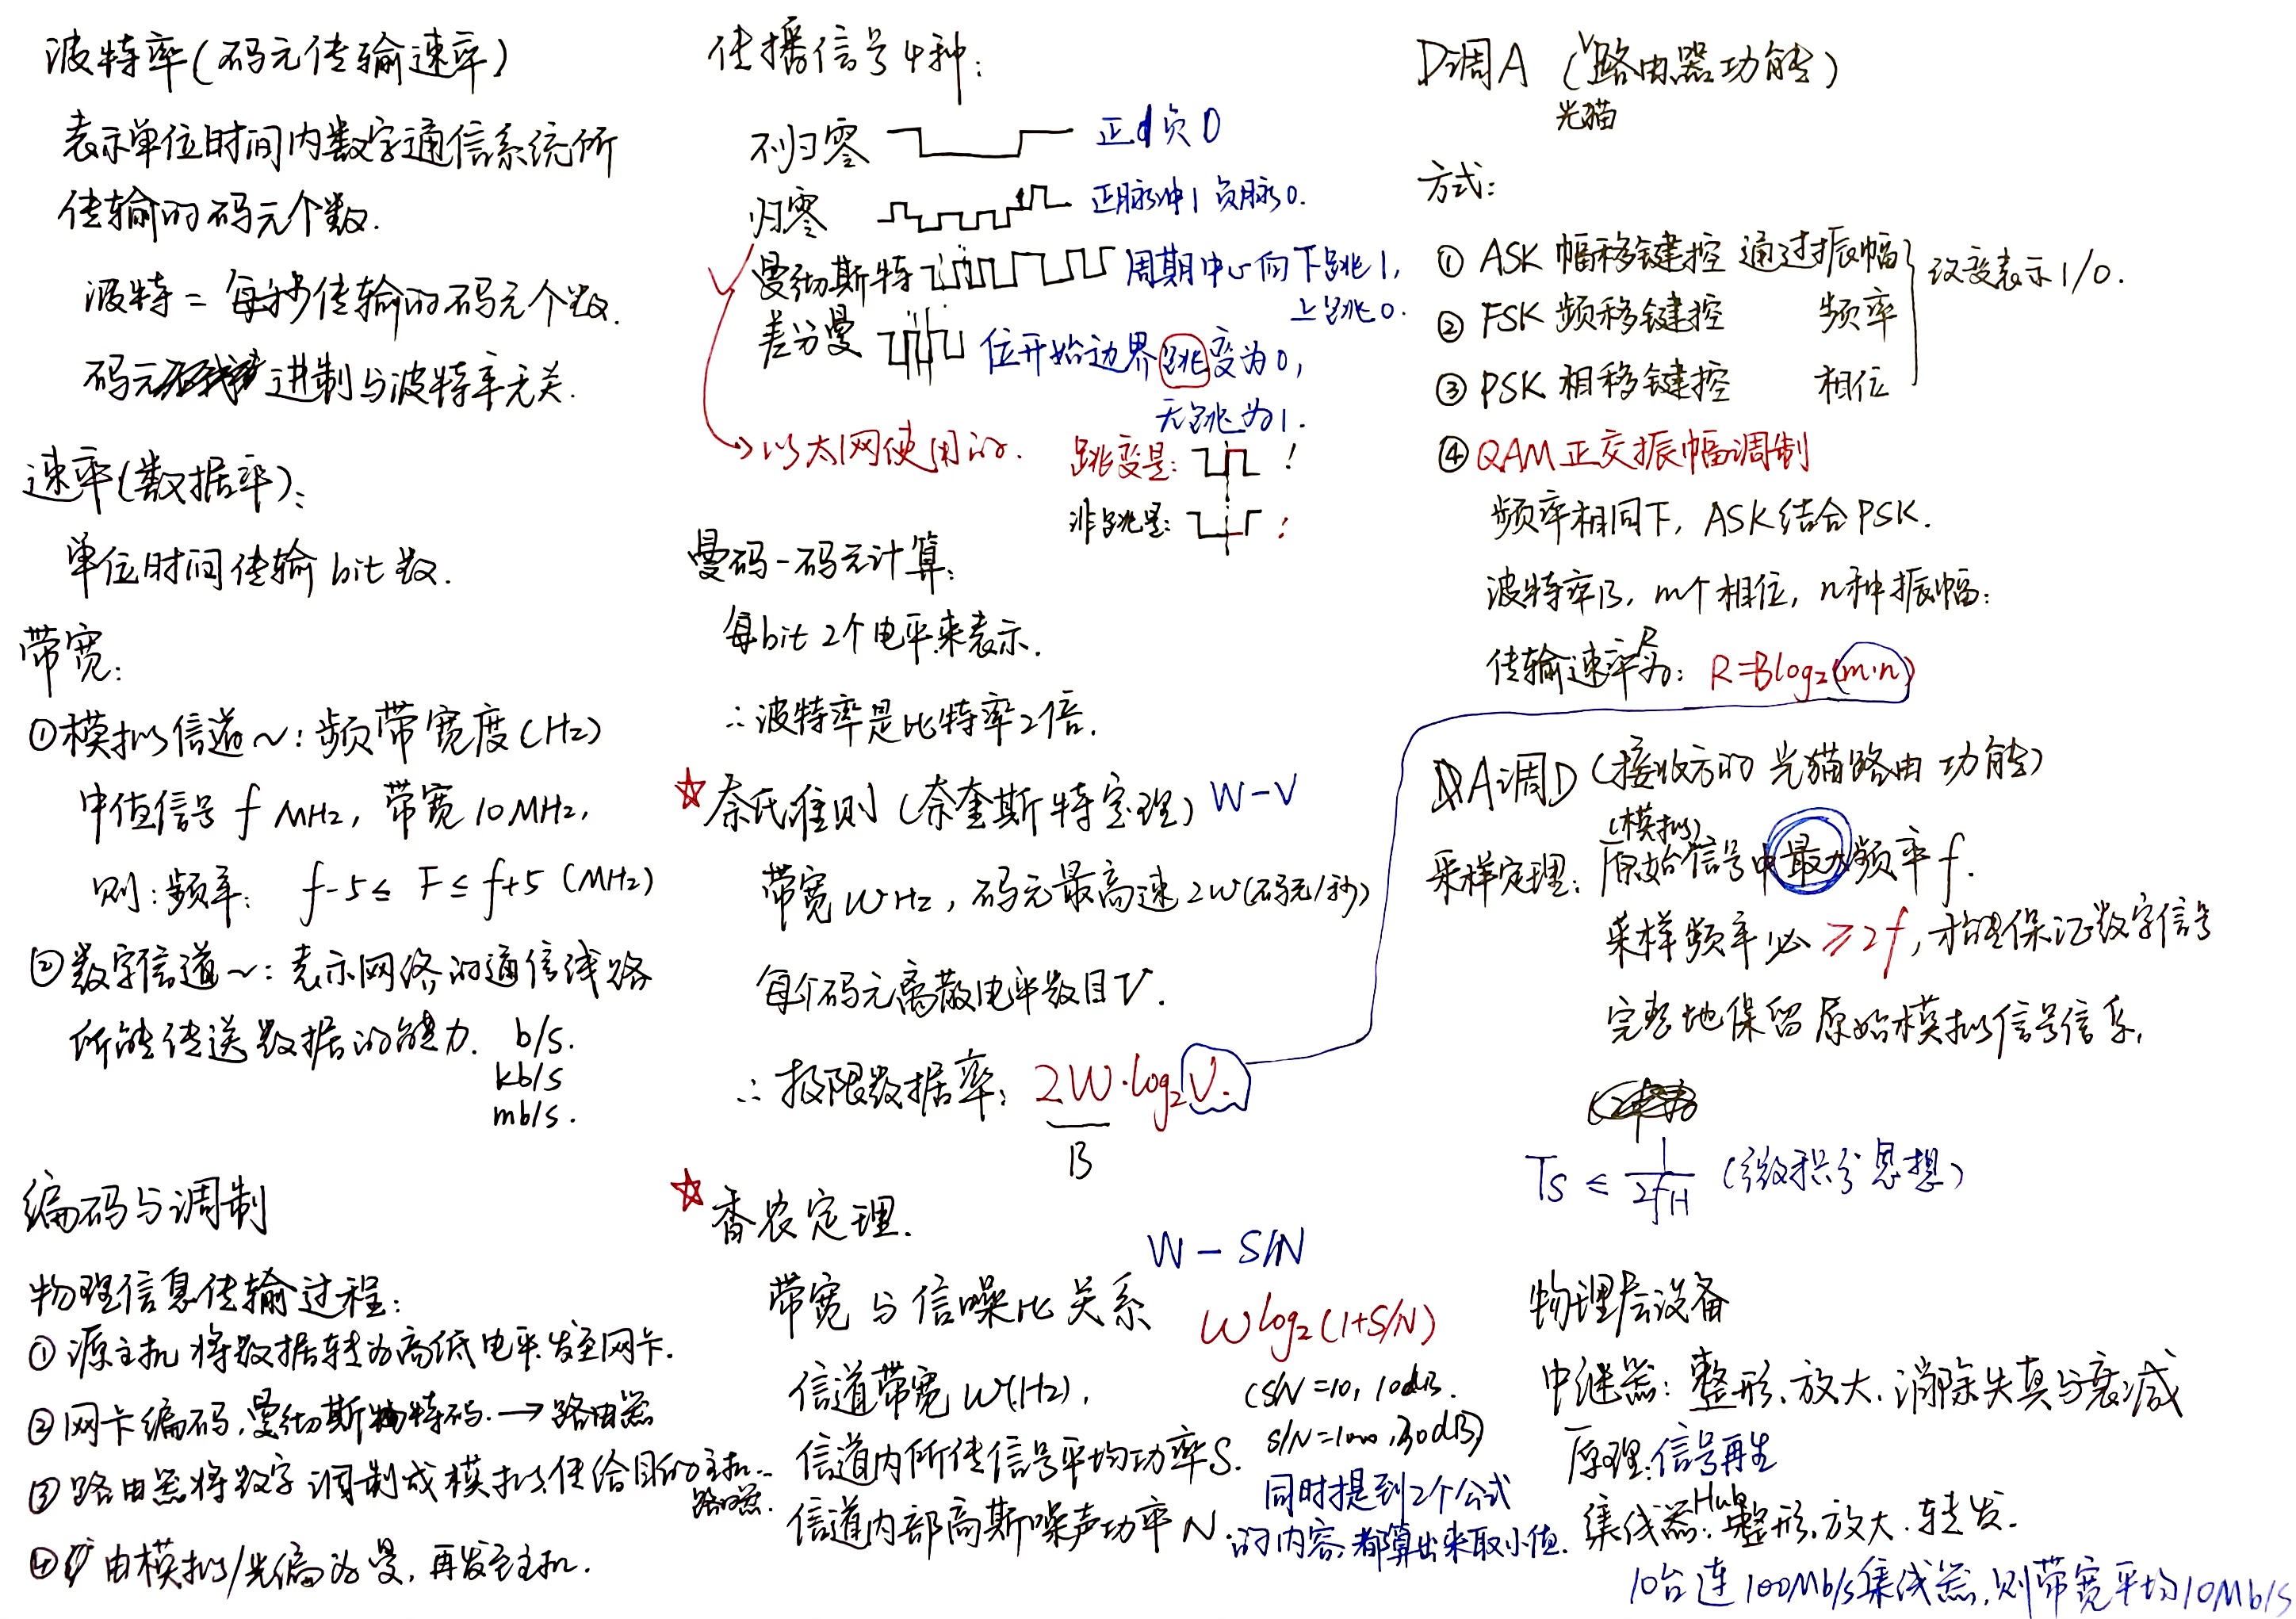 波特率(码元传输速率)
表示单位时间内数字通信系统所
传输的码元个数.
波特 = 每秒传输的码元个数.
码元 进制与波特率无关.
速率(数据率):
单位时间传输 bit 数.
带宽:
①模拟信道~: 频带宽度(Hz)
中值信号 f MHz, 带宽 10MHz,
则: 频率: f-5 ≤ F ≤ f+5 (MHz)
②数字信道~: 表示网络的通信线路
所能传送数据的能力. b/s.
kb/s
mb/s.
编码与调制
物理信息传输过程:
① 源主机 将数据转为高低电平.发至网卡.
② 网卡编码,曼彻斯特码. → 路由器
③ 路由器将数字 调制成 模拟,传给目的主机
路由器.
④ 由模拟/光编为曼, 再发至主机.
传播信号4种:
不归零 正1负0
归零 正脉冲1 负脉0.
曼彻斯特 周期中心向下跳1,
上跳0.
差分曼 位开始边界跳变为0,
无跳为1.
→以太网使用的.
跳变是: !
非跳是: !
曼码-码元计算:
每bit 2个电平来表示.
∴波特率是比特率2倍.
☆奈氏准则 (奈奎斯特定理) W-V
带宽 W Hz, 码元最高速 2W(码元/秒)
每个码元离散电平数目V.
∴ 极限数据率: 2W·log₂V.
B
☆香农定理.
W - S/N
带宽 与 信噪比 关系
W log₂(1+S/N)
信道带宽 W(Hz).
(S/N=10, 10dB.
S/N=1000, 30dB)
信道内所传信号平均功率S.
信道内部高斯噪声功率 N.
同时提到2个公式
的内容,都算出来取小值.
D调A (路由器功能)
光猫
方式:
① ASK 幅移键控 通过振幅
② FSK 频移键控 频率
③ PSK 相移键控 相位
改变表示1/0.
④ QAM 正交振幅调制
频率相同下, ASK结合PSK.
波特率B, m个相位, n种振幅:
传输速率R为: R=Blog₂(m·n)
A调D (接收方的 光猫路由 功能)
采样定理: 原始(模拟)信号中最大频率 f.
采样频率必 ≥2f, 才能保证数字信号
完整地保留原始模拟信号信息.
Ts ≤ 1/2fH (微积分思想)
物理层设备
中继器: 整形.放大.消除失真与衰减
原理:信号再生
集线器Hub: 整形.放大.转发.
10台连100Mb/s集线器,则带宽平均10Mb/s